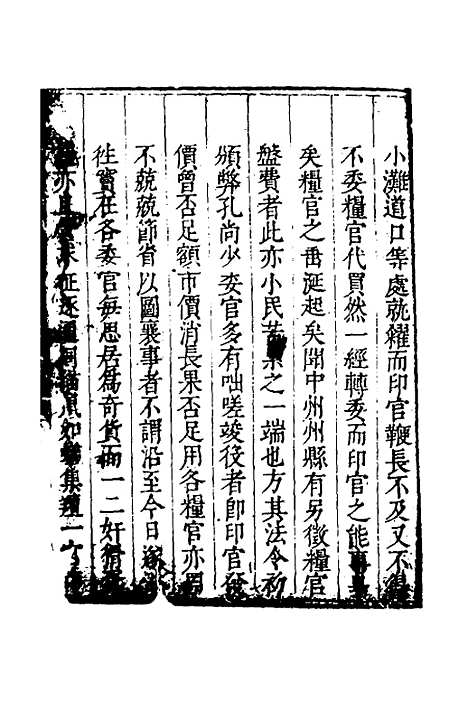 小灘道口等處就糴而印官鞭長不及又不得
不委糧官代買然一經轉委而印官之能事畢
矣糧官之畨涎起矣聞中州州縣有另徵糧官
盤費者此亦小民苦累之一端也方其法令初
頒弊孔尚少委官多有咄嗟竣役者即印官發
價曾否足額市價消長果否足用各糧官亦罔
不兢兢節省以圖襄事者不謂沿至今日遂
徃寳在各委官每思居爲奇貨而一二奸猾
亦且 求征逐 如蟻集羶一